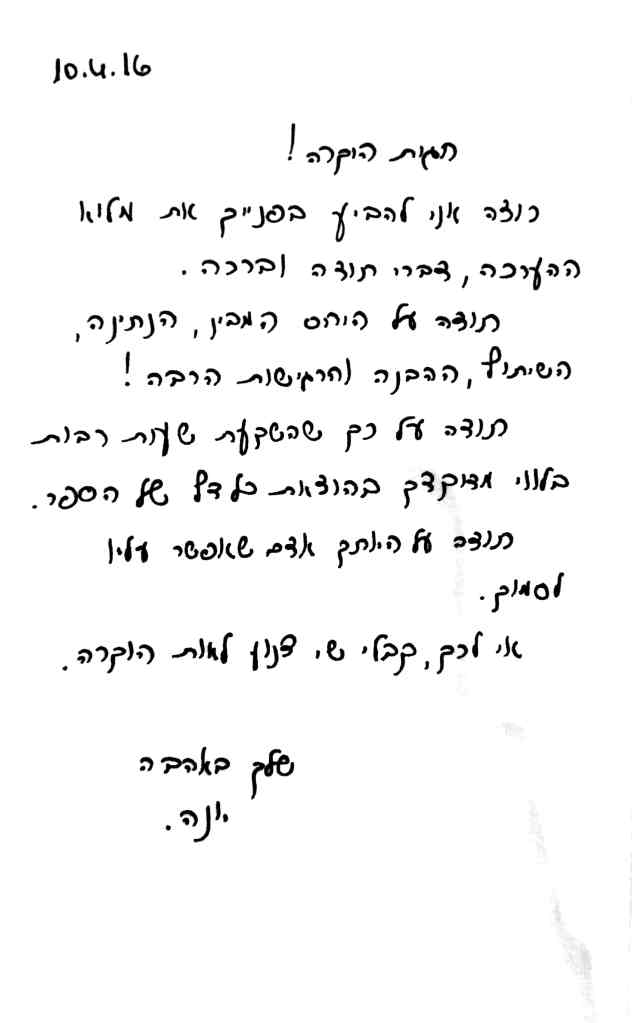 10.4.16
חגית היקרה!
רוצה אני להביע בפנייך את מלוא
ההערכה, דברי תודה וברכה.
תודה על היחס המבין, הנתינה,
השיתוף, ההבנה והרגישות הרבה!
תודה על כך שהשקעת שעות רבות
בלווי מדוקדק בהוצאת כל דף של הספר.
תודה על היותך אדם שאפשר עליו
לסמוך.
אי לכך, קבלי שי צנוע לאות הוקרה.
שלך באהבה
יונה.